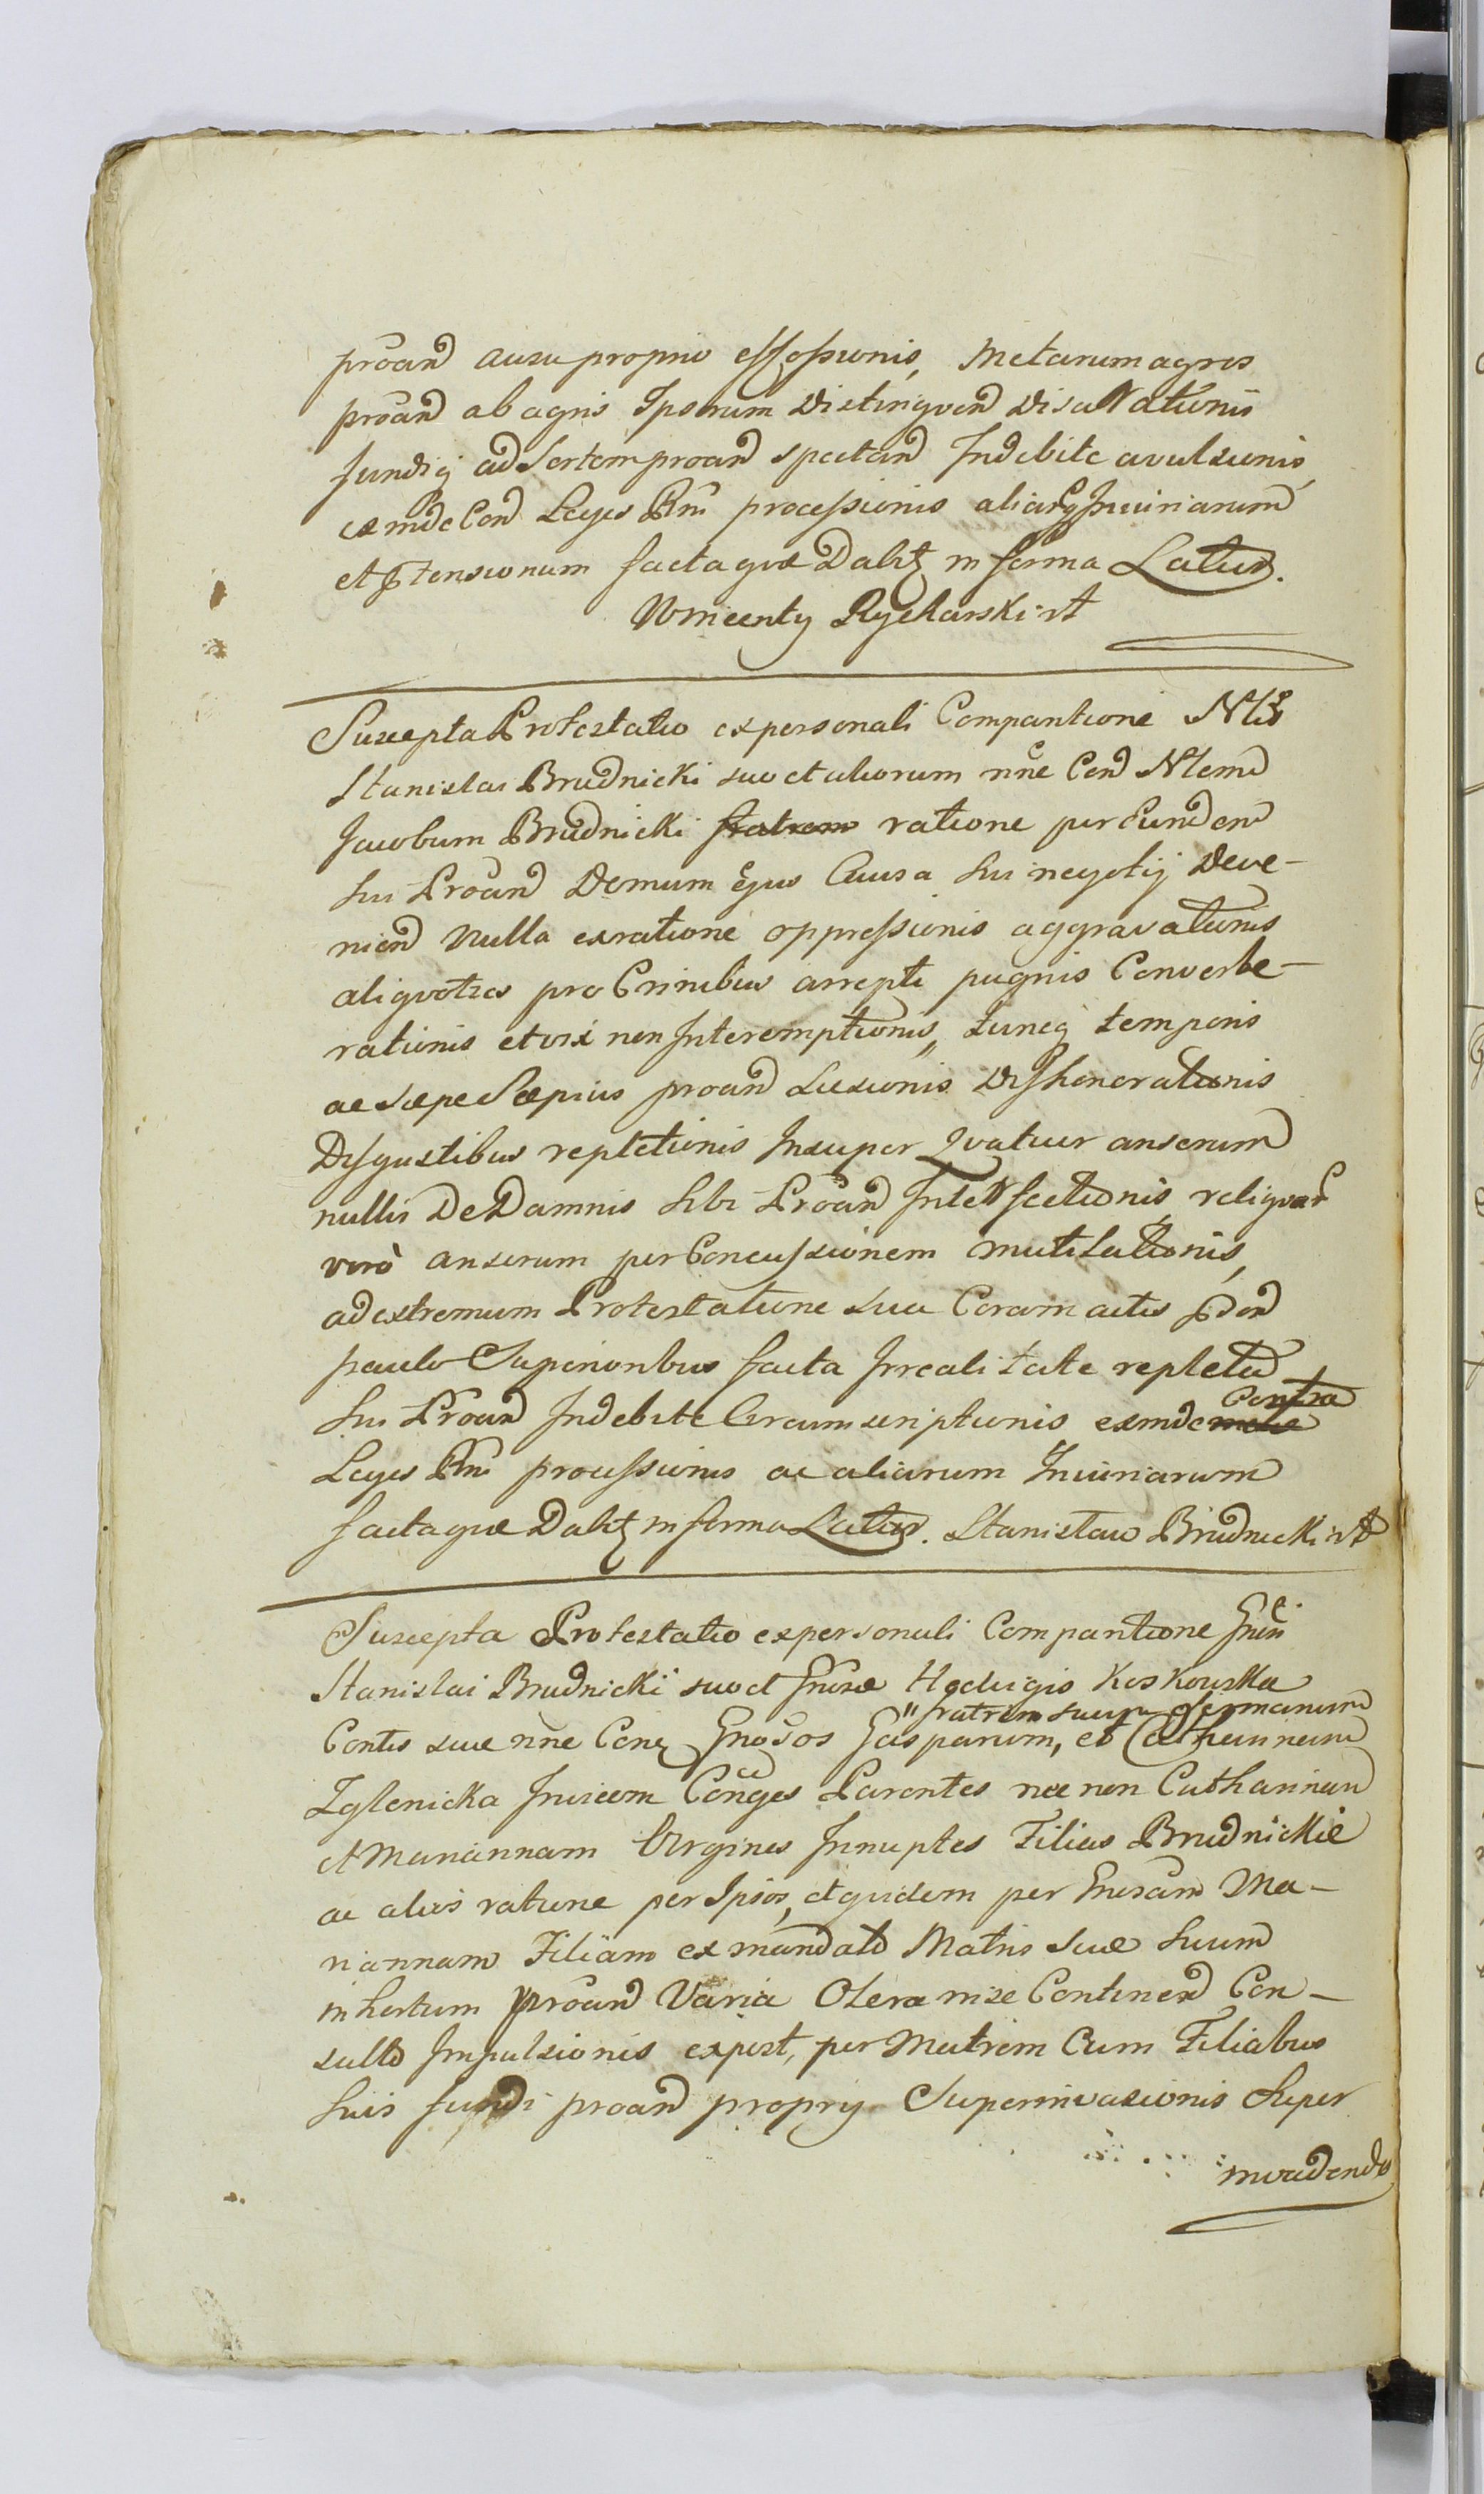 proand ausu proprio effossionis, Metarum agros
proand ab agris Ipsorum Distingvend Disa
fundiq ad Sortem proand spectand Indebite avulsionis,
exinde Con Leges Rni processionis aliarq Iniuriarum
et ptensionum factaque Dabit in forma Latior.
Wincenty Rycharski

Suscepta Protestatio ex personali Comparitione Nlis
Stanislai Brudnicki suo et aliorum nne Con Nlem
Jacobum Brudnicki fratrem ratione per eundem
sui Proand Domum Ejus Causa sui negotij Deve-
niend Nulla ex ratione oppressionis aggravationis
aliqvoties pro Crinibus arrepti pugnis Converbe-
rationis et vix non Interemptionis, tuncq temporis
ac saepe Saepius proand Lusionis Dishonorationis
Disgustibus repletionis Insuper Qvatuor anserum
nullis De Damnis sibi Proand Interfectionis, reliqvar
vero anserum per Concussionem mutilationis,
ad extremum Protestatione sua Coram actis pnd
paulo Superioribus facta Irrealitate repleta
sui Proand Indebite Circumscriptionis exinde Contra
Leges Rni processionis ac aliarum Iniuriarum
factaque Dabit in forma Latior. Stanislaw Brudnicki

Suscepta Protestatio ex personali Comparitione Gnsi
Stanislai Brudnicki suo et Gnsae Hedvigis Koskowska
fratrem suum Germanum
Contis suae nne Con Gnosos Gasparum, et Catharinam
Zglenicka Invicem Conges Parentes nec non Catharinam
et Mariannam Virgines Innuptas Filias Brudnickie
ac aliis ratione per Ipsos, et quidem per Gnsam Ma-
riannam Filiam ex mandato Matris Suae Suum
in hortum proand Varia Olera in se Continend Con-
sulto Impulsionis expost, per Matrem Cum Filiabus
Suis fundi proand proprij Superinvasionis Super
invadendo